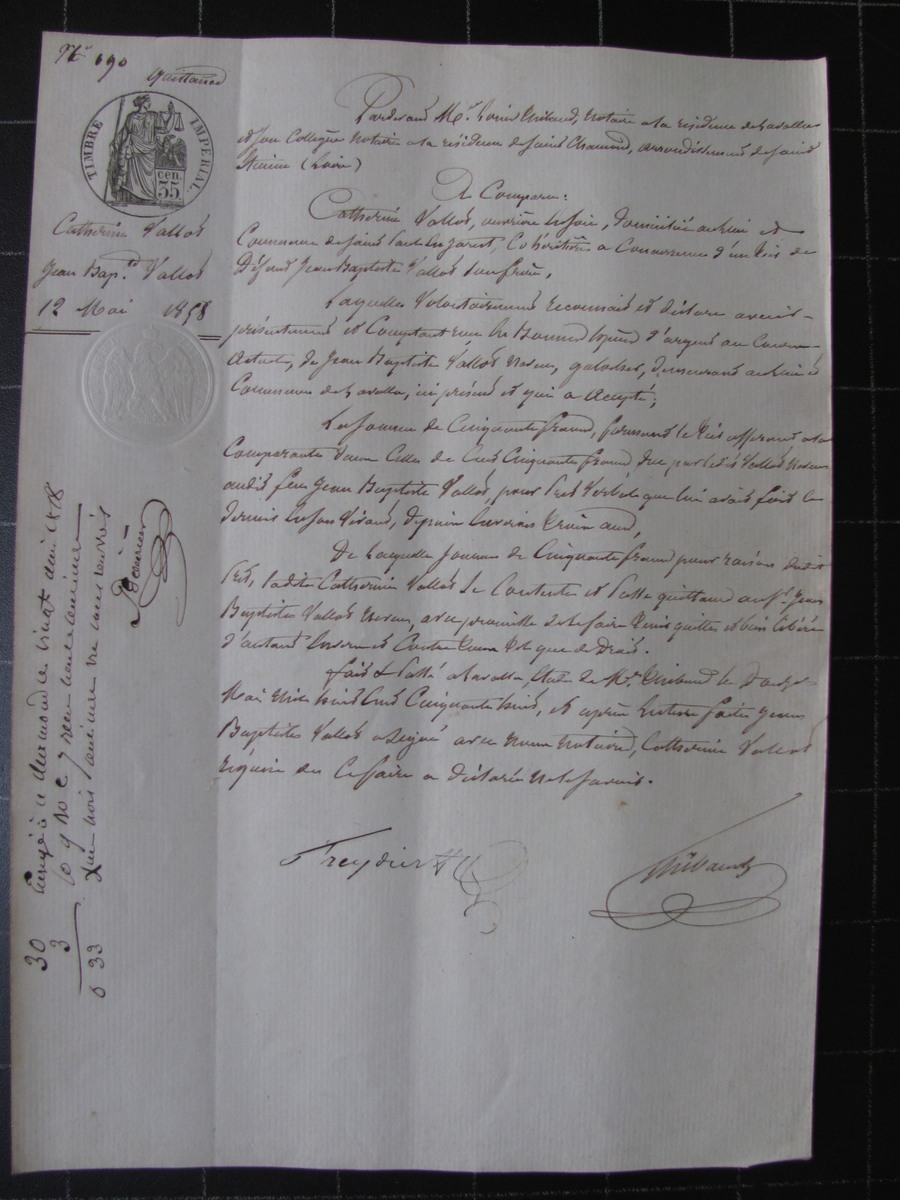 N° 190
Quittance
TIMBRE IMPERIAL
cen. 35.
Catherine Vallos
Jean Bap.te Vallos
12 Mai 1858
Pardevant Me Louis Thibaud, Notaire à la résidence de Lavalla
et son Collègue Notaire à la résidence de Saint Chamond, arrondissement de Saint
Etienne (Loire)
A Comparu:
Catherine Vallos, ouvrière en soie, domiciliée au lieu et
Commune de Saint Paul en Jarret, Cohéritière a Concurrence d'un tiers de
Défunt Jean Baptiste Vallos son frère,
Laquelle Volontairement reconnait et déclare avoir
présentement et Comptant reçu en Bonnes espèces d'argent au Cours
de Jean Baptiste Vallos neveu, galocher, demeurant au lieu et
Commune de Lavalla, ici présent et qui a accepté;
La somme de Cinquante francs, formant le tiers afferant a la
Comparante dans Celle de Cent Cinquante francs due par le dit Vallos neveu
audit feu Jean Baptiste Vallos, pour Prêt Verbal que lui avait fait ce
dernier en son Vivant, depuis environ trois ans,
De Laquelle Somme de Cinquante francs pour raison dudit
Prêt, ladite Catherine Vallos Se Contente et Passe quittance au Sr Jean
Baptiste Vallos neveu, avec promesse de le faire tenir quitte et bien libéré
d'autant Envers et Contre tous tel que de Droit.
Fait & Passé a Lavalla, Etude de Me Thibaud le Douze
Mai Mil huit Cent Cinquante huit, et après lecture faite Jean
Baptiste Vallos a Signé avec nous Notaires, Catherine Vallos
requise de Ce faire a déclaré ne le Savoir.
Freydier
Thibaud
Enregistré à St Chamond le vingt 1858
fo 9 Ro C 7 reçu
30
3
0 33